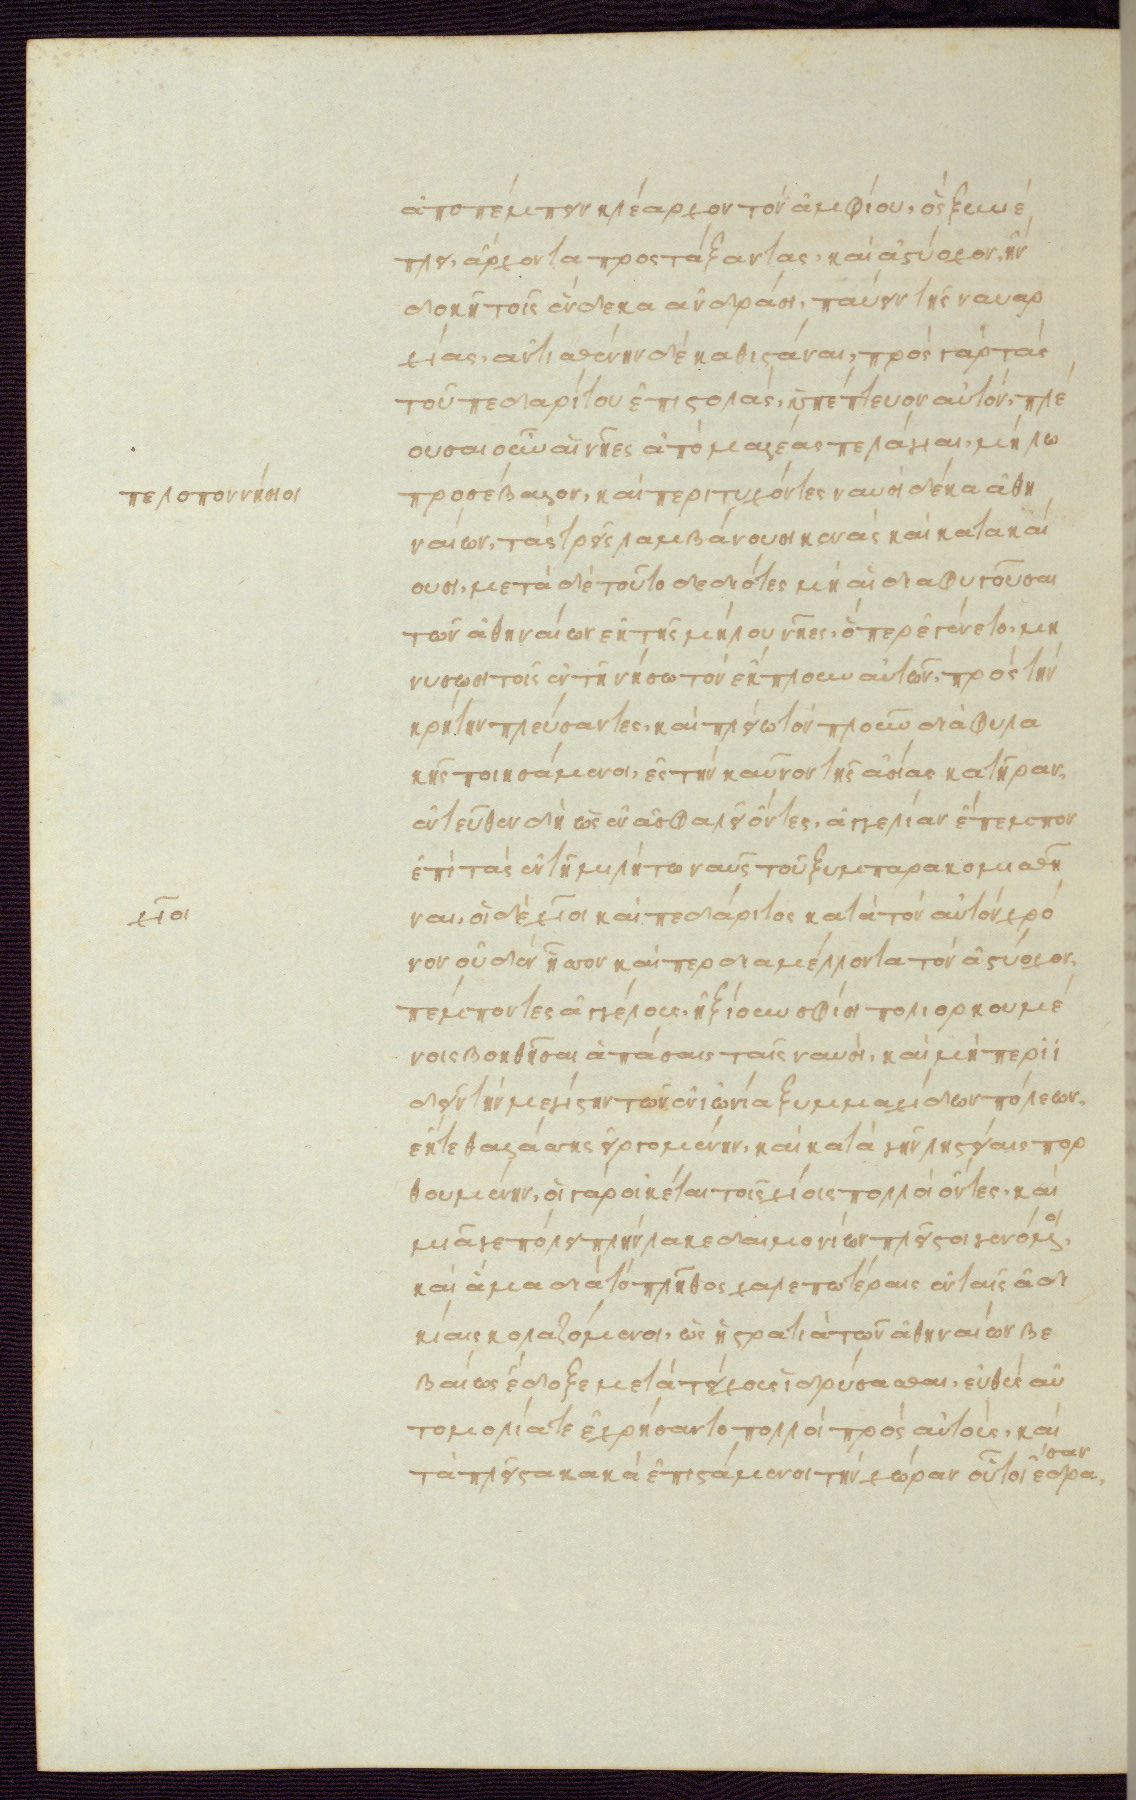 ἀποπέμπειν κλέαρχον τὸν ἀμφίου, ὃς ξυνέ
πλει, ἄρχοντα προστάξαντας, καὶ ἀστύοχον, ἢν
δοκῆ τοῖς ἕνδεκα ἀνδράσι, παύειν τῆς ναυαρ
χίας, ἀντισθένην δὲ καθιστάναι, πρὸς γὰρ τὰς
τοῦ πεδαρίτου ἐπιστολὰς, ὑπέπτευον αὐτόν, πλέ
ουσαι οὖν αἱ νῆες ἀπὸ μαλέας πελάγιαι, μήλω
πελοποννήσιοι
προσέβαλον, καὶ περιτυχόντες ναυσὶ δέκα ἀθη
ναίων, τὰς τρεῖς λαμβάνουσι κενὰς καὶ κατακαί
ουσι, μετὰ δὲ τοῦτο δεδιότες μὴ αἱ διαφυγοῦσαι
τῶν ἀθηναίων ἐκ τῆς μήλου νῆες, ὅπερ ἐγένετο, μη
νύσωσι τοῖς ἐν τῆ νήσω τὸν ἔκπλουν αὐτῶν, πρὸς τὴν
κρήτην πλεύσαντες, καὶ πλείω τὸν πλοῦν διὰ φυλα
κῆς ποιησάμενοι, ἐς τὴν καῦνον τῆς ἀσίας κατῆραν,
ἐντεῦθεν δὴ ὡς ἐν ἀσφαλεῖ ὄντες, ἀγγελίαν ἔπεμπον
ἐπὶ τὰς ἐν τῆ μιλήτω ναῦς τοῦ ξυμπαρακομισθῆ
χῖοι
ναι, οἱ δὲ χῖοι καὶ πεδάριτος κατὰ τὸν αὐτὸν χρό
νον οὐδὲν ἧσσον καίπερ διαμέλλοντα τὸν ἀστύοχον,
πέμποντες ἀγγέλους, ἠξίουν σφίσι πολιορκουμέ
νοις βοηθῆσαι ἁπάσαις ταῖς ναυσὶ, καὶ μὴ περιϊ
δεῖν τὴν μεγίστην τῶν ἐν ἰωνία ξυμμαχίδων πόλεων,
ἔκ τε θαλάσσης εἰργομένην, καὶ κατὰ γῆν ληστείαις πορ
θουμένην, οἱ γὰρ οἰκέται τοῖς χίοις πολλοὶ ὄντες, καὶ
μιᾶ γε πόλει πλὴν λακεδαιμονίων πλεῖστοι γενόμενοι,
καὶ ἅμα διὰ τὸ πλῆθος χαλεπωτέρως ἐν ταῖς ἀδι
κίαις κολαζόμενοι, ὡς ἡ στρατιὰ τῶν ἀθηναίων βε
βαίως ἔδοξε μετὰ τείχους ἱδρύσασθαι, εὐθὺς αὐ
τομολία τε ἐχρήσαντο πολλοὶ πρὸς αὐτοὺς, καὶ
τὰ πλεῖστα κακὰ ἐπιστάμενοι τὴν χώραν οὗτοι ἔδρασαν,